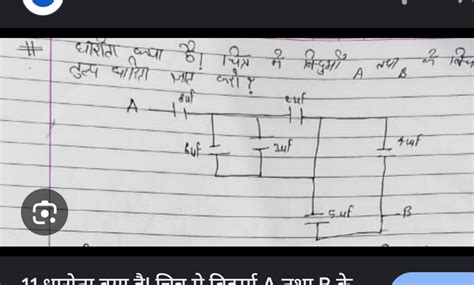 # धारीता क्या है! चित्र में बिन्दुओं A तथा B के बिच
तुल्य धारिता ज्ञात करो?
A
8uf
2uf
2uf
4uf
5uf
B
11 धारीता क्या है! चित्र में बिन्दुओं A तथा B के